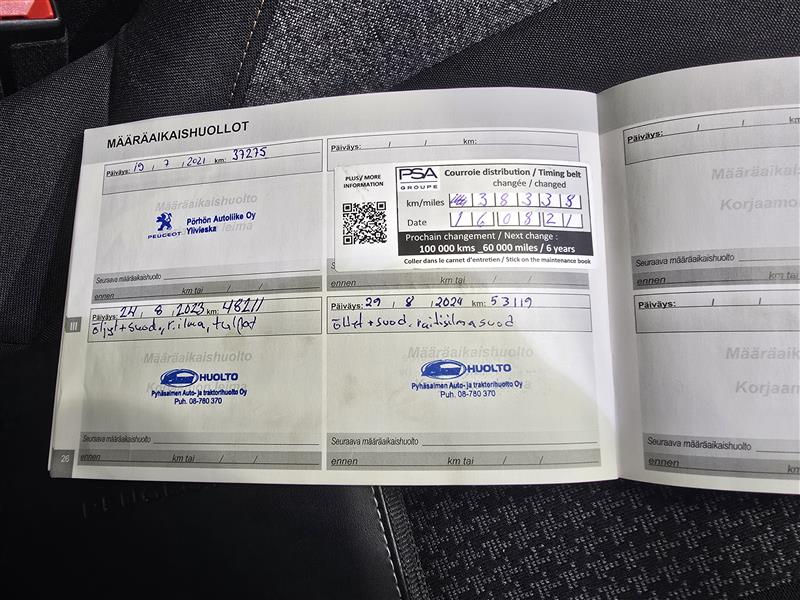 MÄÄRÄAIKAISHUOLLOT
Päiväys: 19 / 7 / 2021 km: 37275
Määräaikaishuolto
leima
PEUGEOT
Pörhön Autoliike Oy
Ylivieska
Seuraava määräaikaishuolto
ennen km tai / /
Päiväys: / / km:
PLUS/MORE
INFORMATION
PSA
GROUPE
Courroie distribution / Timing belt
changée / changed
km/miles 38338
Date 160821
Prochain changement / Next change :
100 000 kms _60 000 miles / 6 years
Coller dans le carnet d'entretien / Stick on the maintenance book
ennen km tai / /
Päiväys: 24 / 8 / 2023 km: 48211
öljyt+suod, r.ilma, tulpat
Määräaikaishuolto
HUOLTO
Pyhäsalmen Auto- ja traktorihuolto Oy
Puh. 08-780 370
Seuraava määräaikaishuolto
ennen km tai / /
Päiväys: 29 / 8 / 2024 km: 53119
öljyt+suod, raitisilmasuod
Määräaikaishuolto
HUOLTO
Pyhäsalmen Auto- ja traktorihuolto Oy
Puh. 08-780 370
Seuraava määräaikaishuolto
ennen km tai / /
III
26
Päiväys: / / km:
Määräaikaishuolto
Korjaamon
Seuraava määräaikaishuolto
ennen km tai /
Päiväys: / /
Määräaikaishuolto
Korjaamon
Seuraava määräaikaishuolto
ennen km tai /